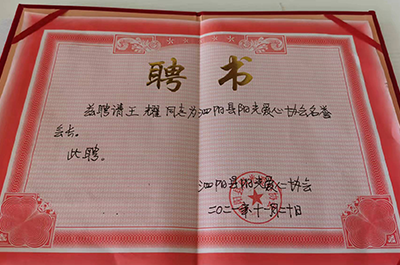 聘书
兹聘请王耀同志为泗阳县阳光爱心协会名誉
会长。
此聘。
泗阳县阳光爱心协会
二〇二一年十一月二十日